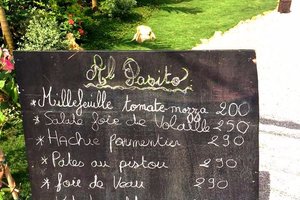 Al Dasito
* Millefeuille tomate mozza 200
* Salade foie de Volaille 250
* Hachie parmentier 290
* Pates au pistou 290
* foie de Veau 290